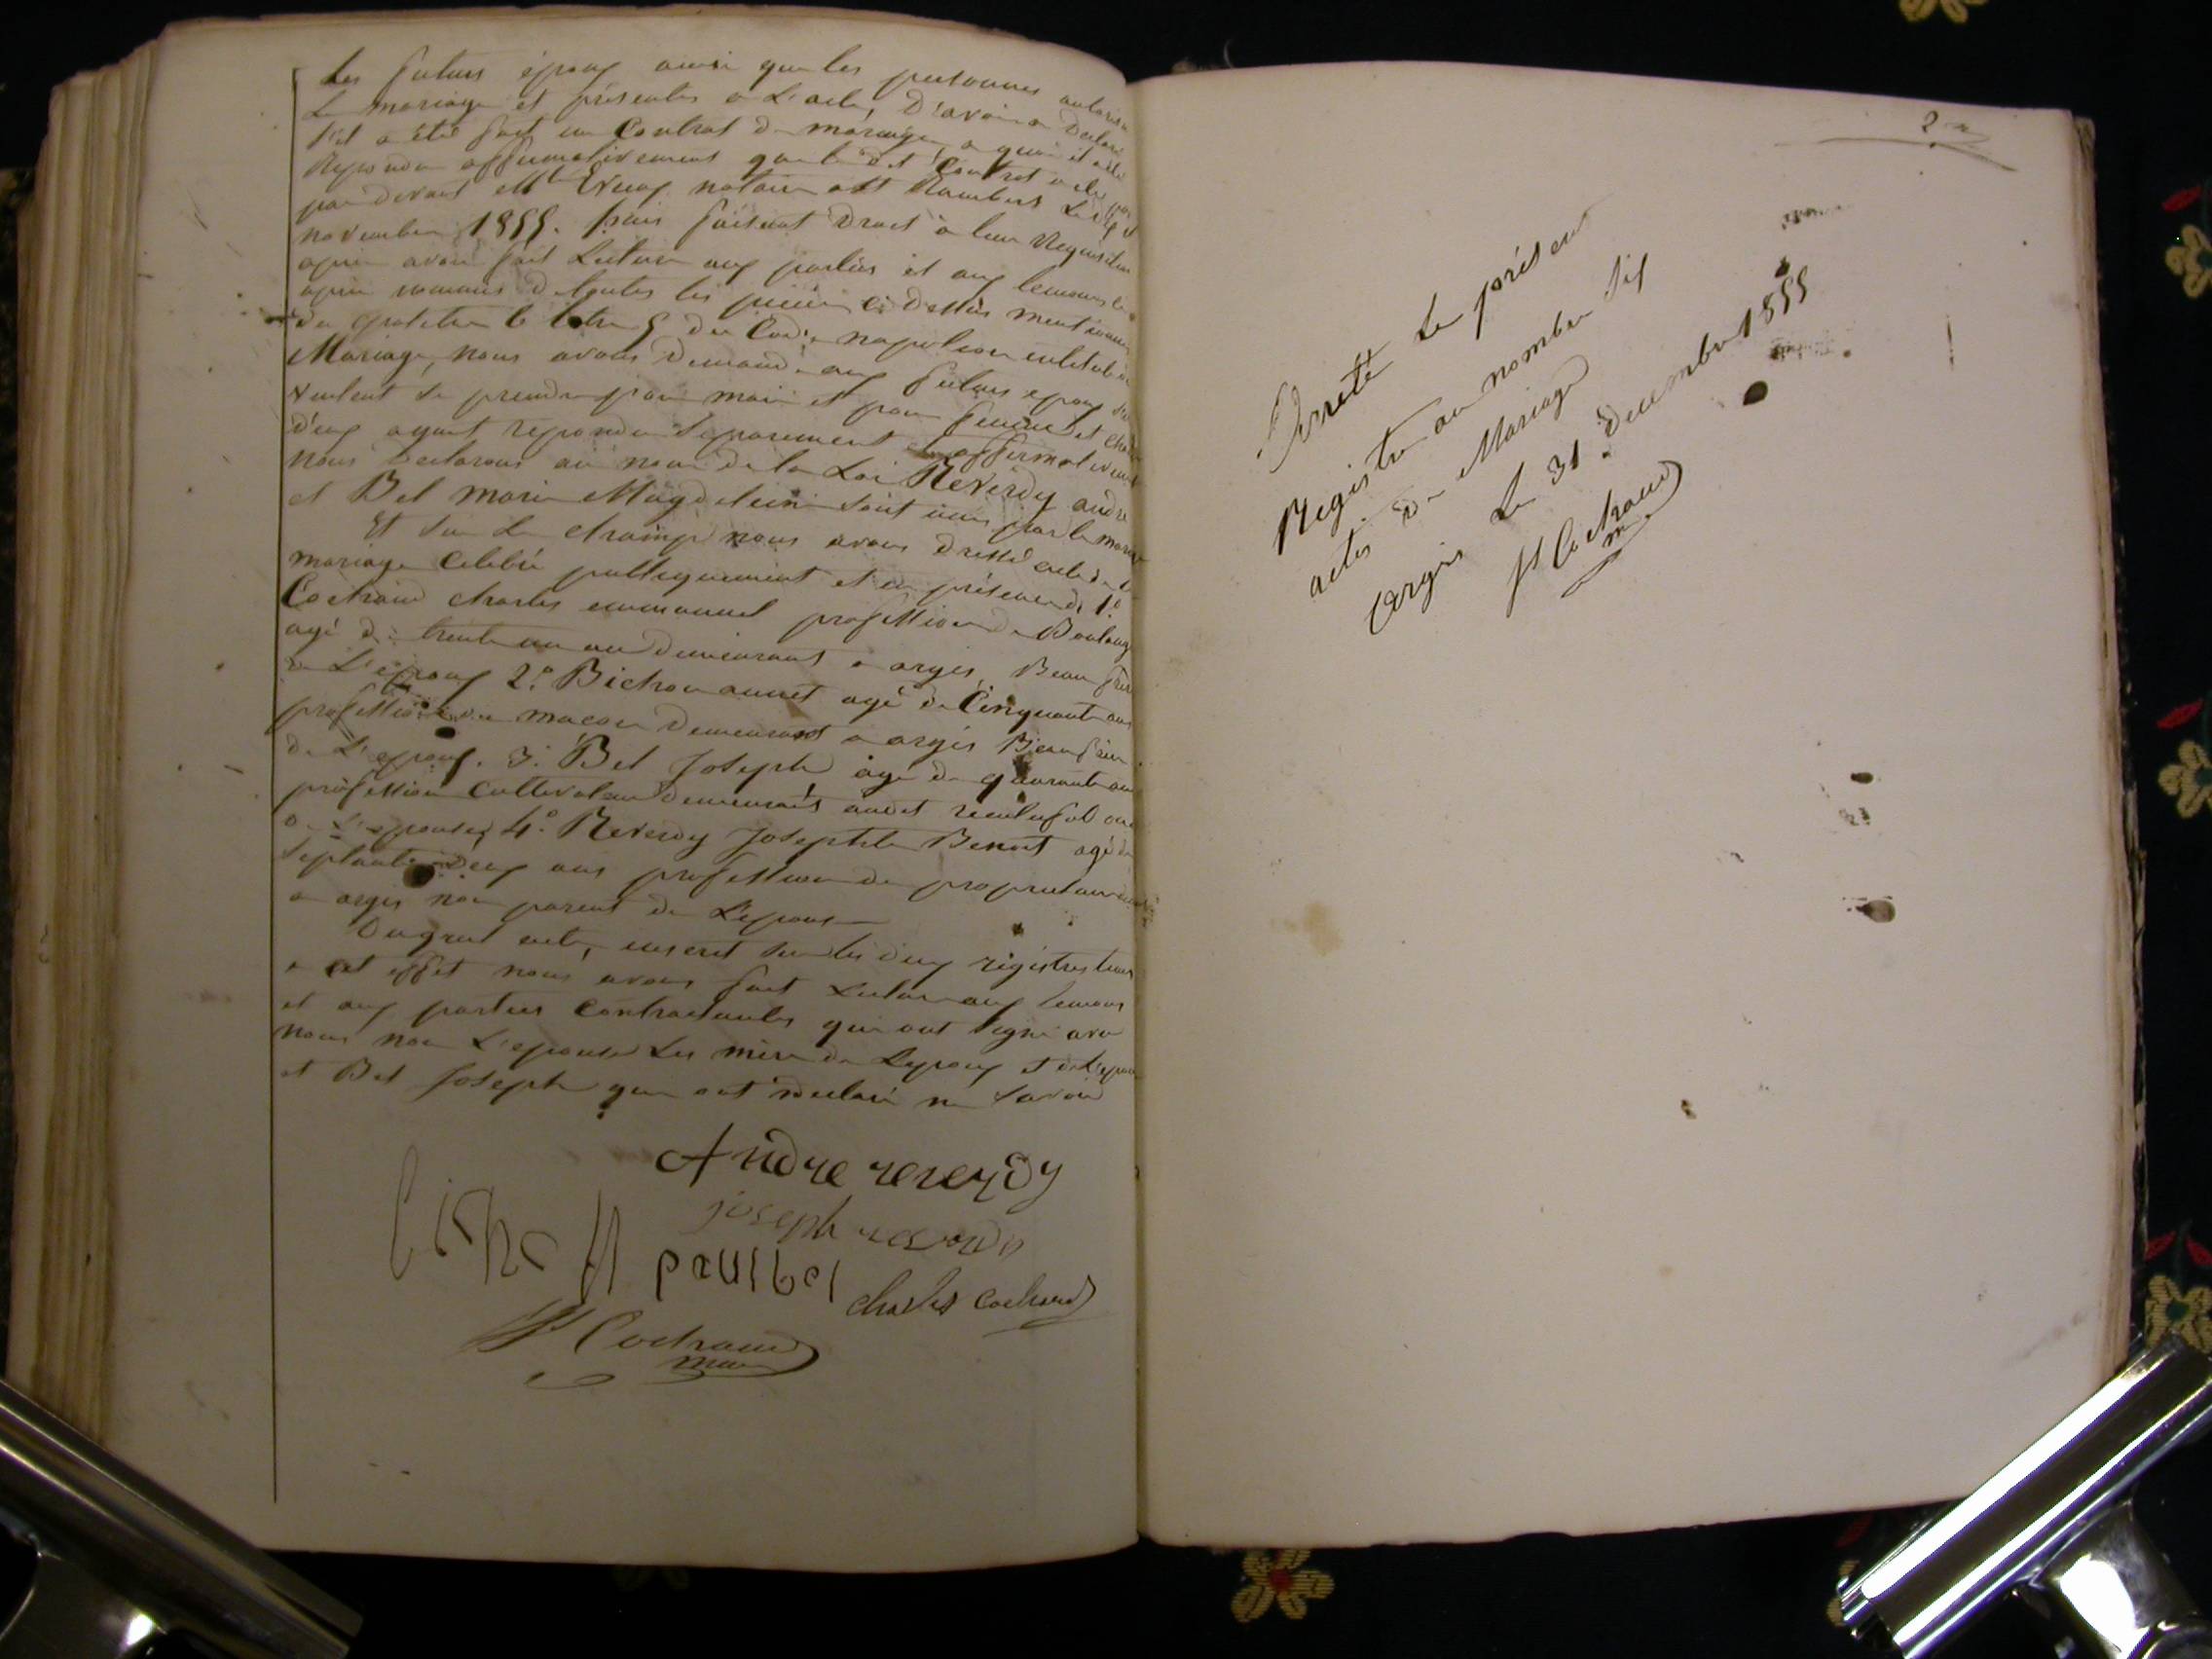 Les futurs époux ainsi que les personnes autorisa
Le mariage et présentes a L'acte, D'avoir a Declaré
s'il a été fait un Contrat de mariage, a quoi il a été
Repondu affirmativement que le dit Contrat a été
par devant Mte notaire a St Rambert Le
novembre 1855. puis faisant Droit à leur Requisition
apres avoir fait Lecture aux parties et aux temoins
de toutes les pièces ci Dessus mentionn
du chapitre 6 titre 5 du Code napoleon intitulé
Mariage, nous avons Demandé aux futurs epoux s'il
veulent se prendre pour mari et pour femme et cha
d'eux ayant repondu separement et affirmativem
nous Declarons au nom de la Loi Reverdy andre
et Bel marie Magdeleine sont unis par le maria
Et sur Le champ nous avons dressé acte de
mariage Celebré publiquement et en présence de 1°
Cochaud charles emmanuel profession de Boulang
agé de trente un an Demeurant a argis, Beau frère
de L'epoux 2° Bichon annet agé de Cinquante ans
profession de macon Demeurant a argis Beau frere
de L'epoux. 3° Bel Joseph agé de quarante ans
profession Cultivateur demeurant audit
de L'epouse, 4° Reverdy Joseph Benoit agé de
septante deux ans profession de proprietaire
a argis non parent de L'epouse
Duquel acte, inseret sur les deux régistres tenus
a cet effet nous avons fait Lecture aux temoins
et aux parties Contractantes qui ont signé avec
nous non L'epouse Les mère de Lepoux et de L'epou
et Bel Joseph qui ont declaré ne savoir
Andre reverdy
joseph reverdy
charles cochaud
Cochaud
maire
2
Arreté Le présent
Registre au nombre Six
actes de Mariage
argis Le 31 Decembre 1855
Cochaud
m